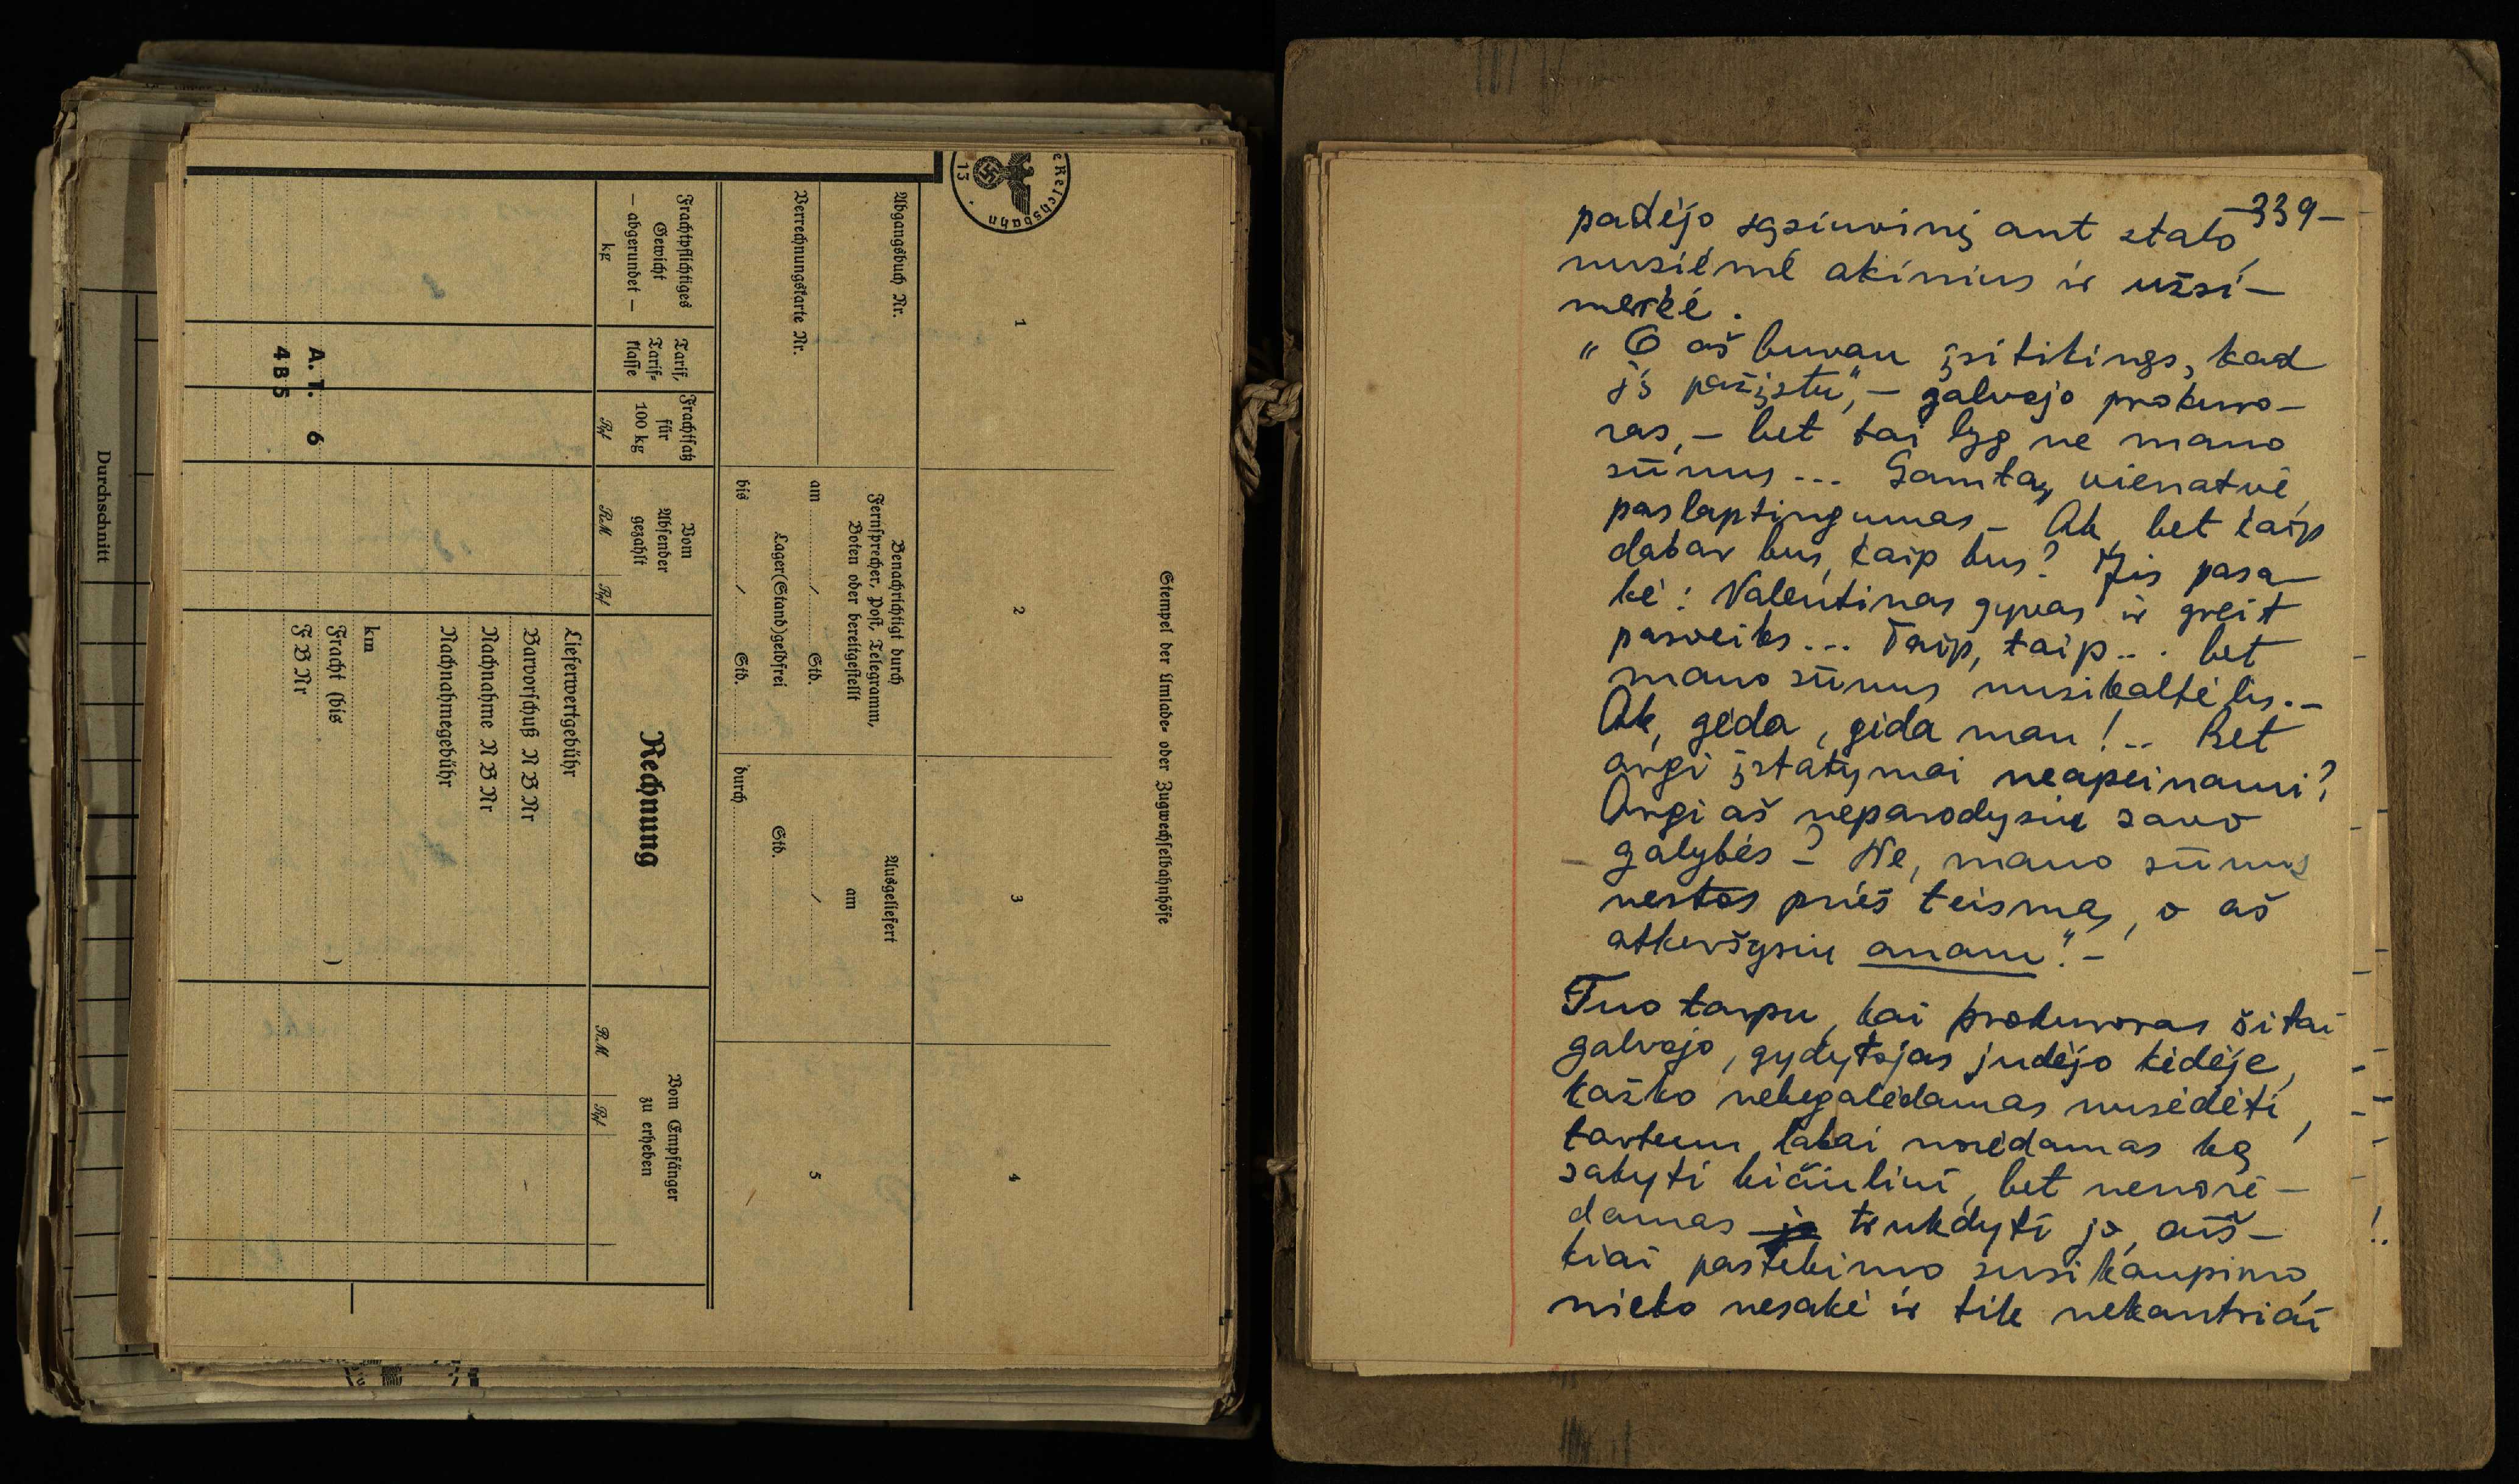 Durchschnitt
e Reichsbahn
13
Stempel der Umlade- oder Zugwechselbahnhöfe
1
2
3
4
Abgangsbuch Nr.
Verrechnungskarte Nr.
Benachrichtigt durch
Fernsprecher, Post, Telegramm,
Boten oder bereitgestellt
am / Std.
Lager(Stand)geldfrei
bis / Std.
Ausgeliefert
am
/
Std.
durch
5
Frachtpflichtiges
Gewicht
— abgerundet —
kg
Tarif,
Tarif-
klasse
Frachtsatz
für
100 kg
Rpf
Vom
Absender
gezahlt
RM Rpf
Rechnung
Vom Empfänger
zu erheben
RM Rpf
Lieferwertgebühr
Barvorschuß N B Nr
Nachnahme N B Nr
Nachnahmegebühr
km
Fracht (bis )
F B Nr
A. T. 6
4 B 5
-339-
padėjo sąsiuvinį ant stalo,
nusiėmė akinius ir užsi-
merkė.
„O aš buvau įsitikinęs, kad
jį pažįstu", - galvojo prokuro-
ras, - bet tai lyg ne mano
sūnus... Gamta, vienatvė,
paslaptingumas - Ak, bet kaip
dabar bus, kaip bus? Jis pasa-
kė: Valentinas gyvas ir greit
pasveiks... Taip, taip... bet
mano sūnus nusikaltėlis. -
Ak, gėda, gėda man!.. Bet
argi įstatymai neapeinami?
Argi aš neparodysiu savo
galybės? - Ne, mano sūnus
nestos prieš teismą, o aš
atkeršysiu anam". -
Tuo tarpu, kai prokuroras šitai
galvojo, gydytojas judėjo kėdėje,
kažko nebegalėdamas nusėdėti,
tartum labai norėdamas ką
sakyti bičiuliui, bet nenorė-
damas jo trukdyti jo, aiš-
kiai pastebimo susikaupimo,
nieko nesakė ir tik nekantriai
!..